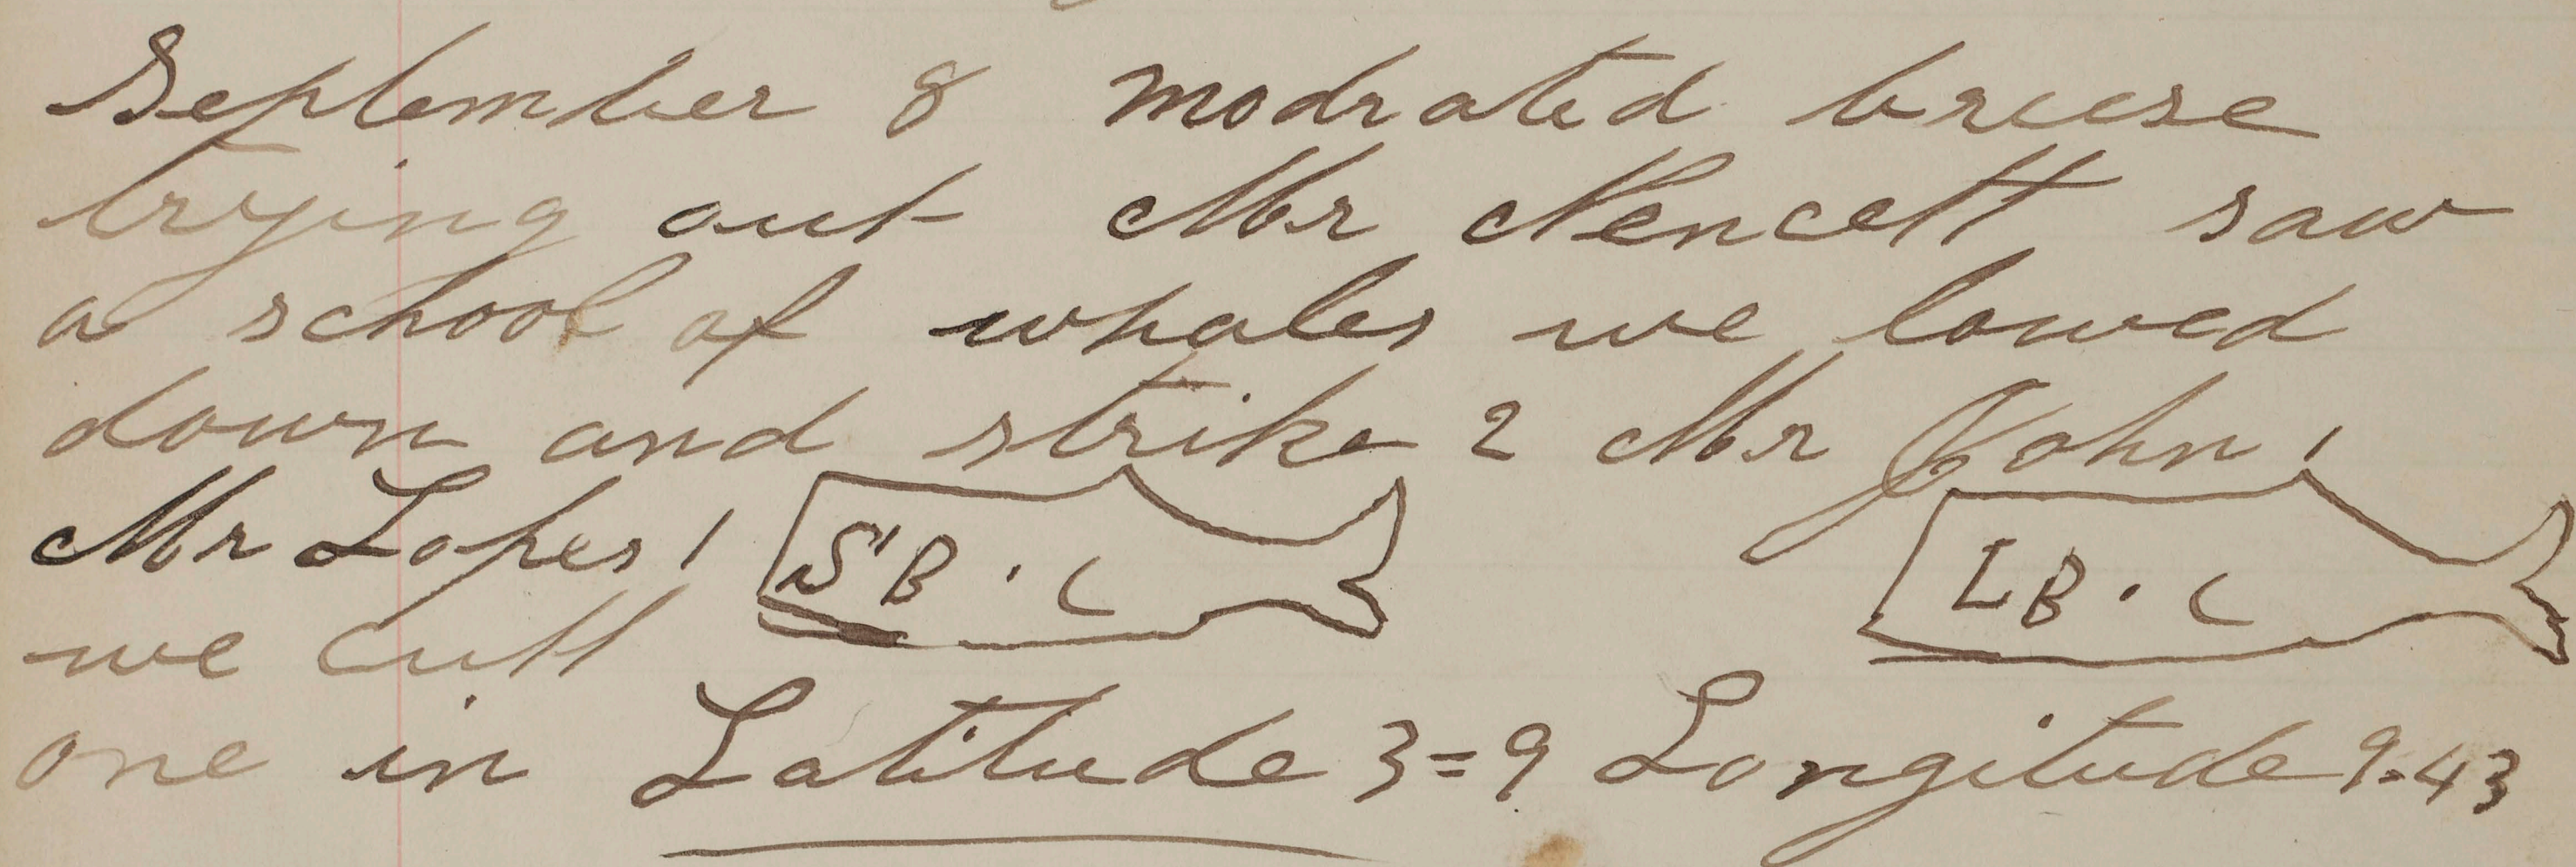 September 8 modrated breese
trying out Mr Nencett saw
a school of whales we lowed
down and strike 2 Mr John 1
Mr Lopes 1 SB. C LB. C
we cutt
one in Latitude 3=9 Longitude 9=43